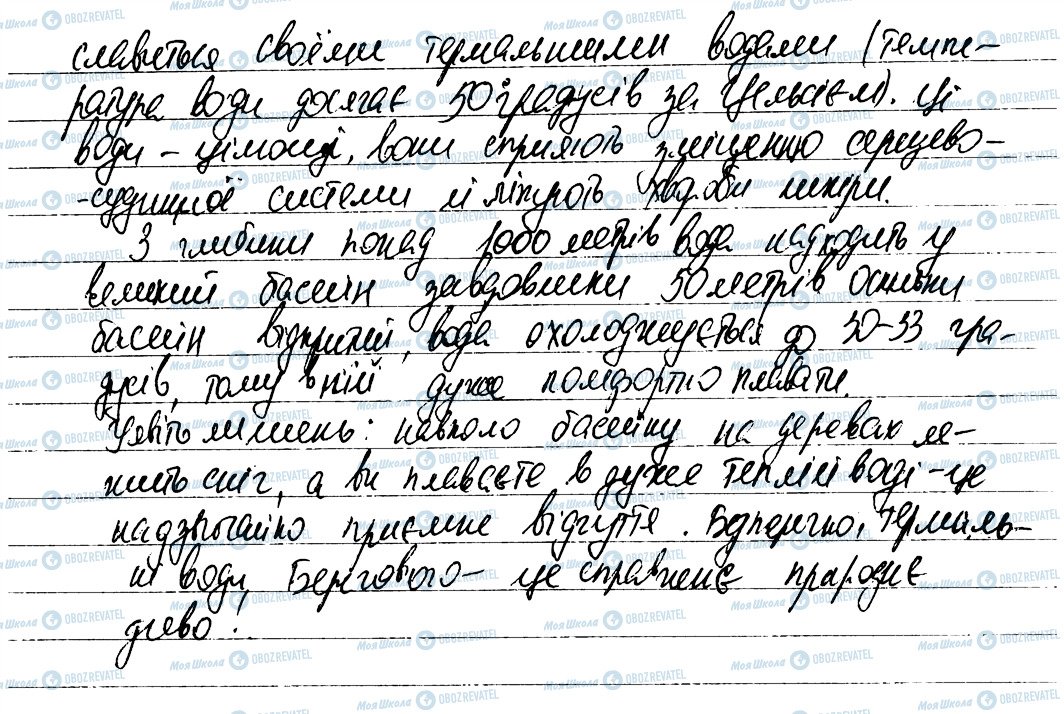 славиться своїми термальними водами (темпе-
ратура води досягає 50 градусів за Цельсієм). Ці
води – цілющі, вони сприяють зміцненню серцево-
-судинної системи й лікують хвороби шкіри.
З глибини понад 1000 метрів вода надходить у
великий басейн завдовжки 50 метрів. Оскільки
басейн відкритий, вода охолоджується до 30-33 гра-
дусів, тому в ній дуже комфортно плавати.
Уявіть лишень: навколо басейну на деревах ле-
жить сніг, а ви плаваєте в дуже теплій воді – це
надзвичайно приємне відчуття. Безперечно, термаль-
ні води Берегового – це справжнє природне
диво!